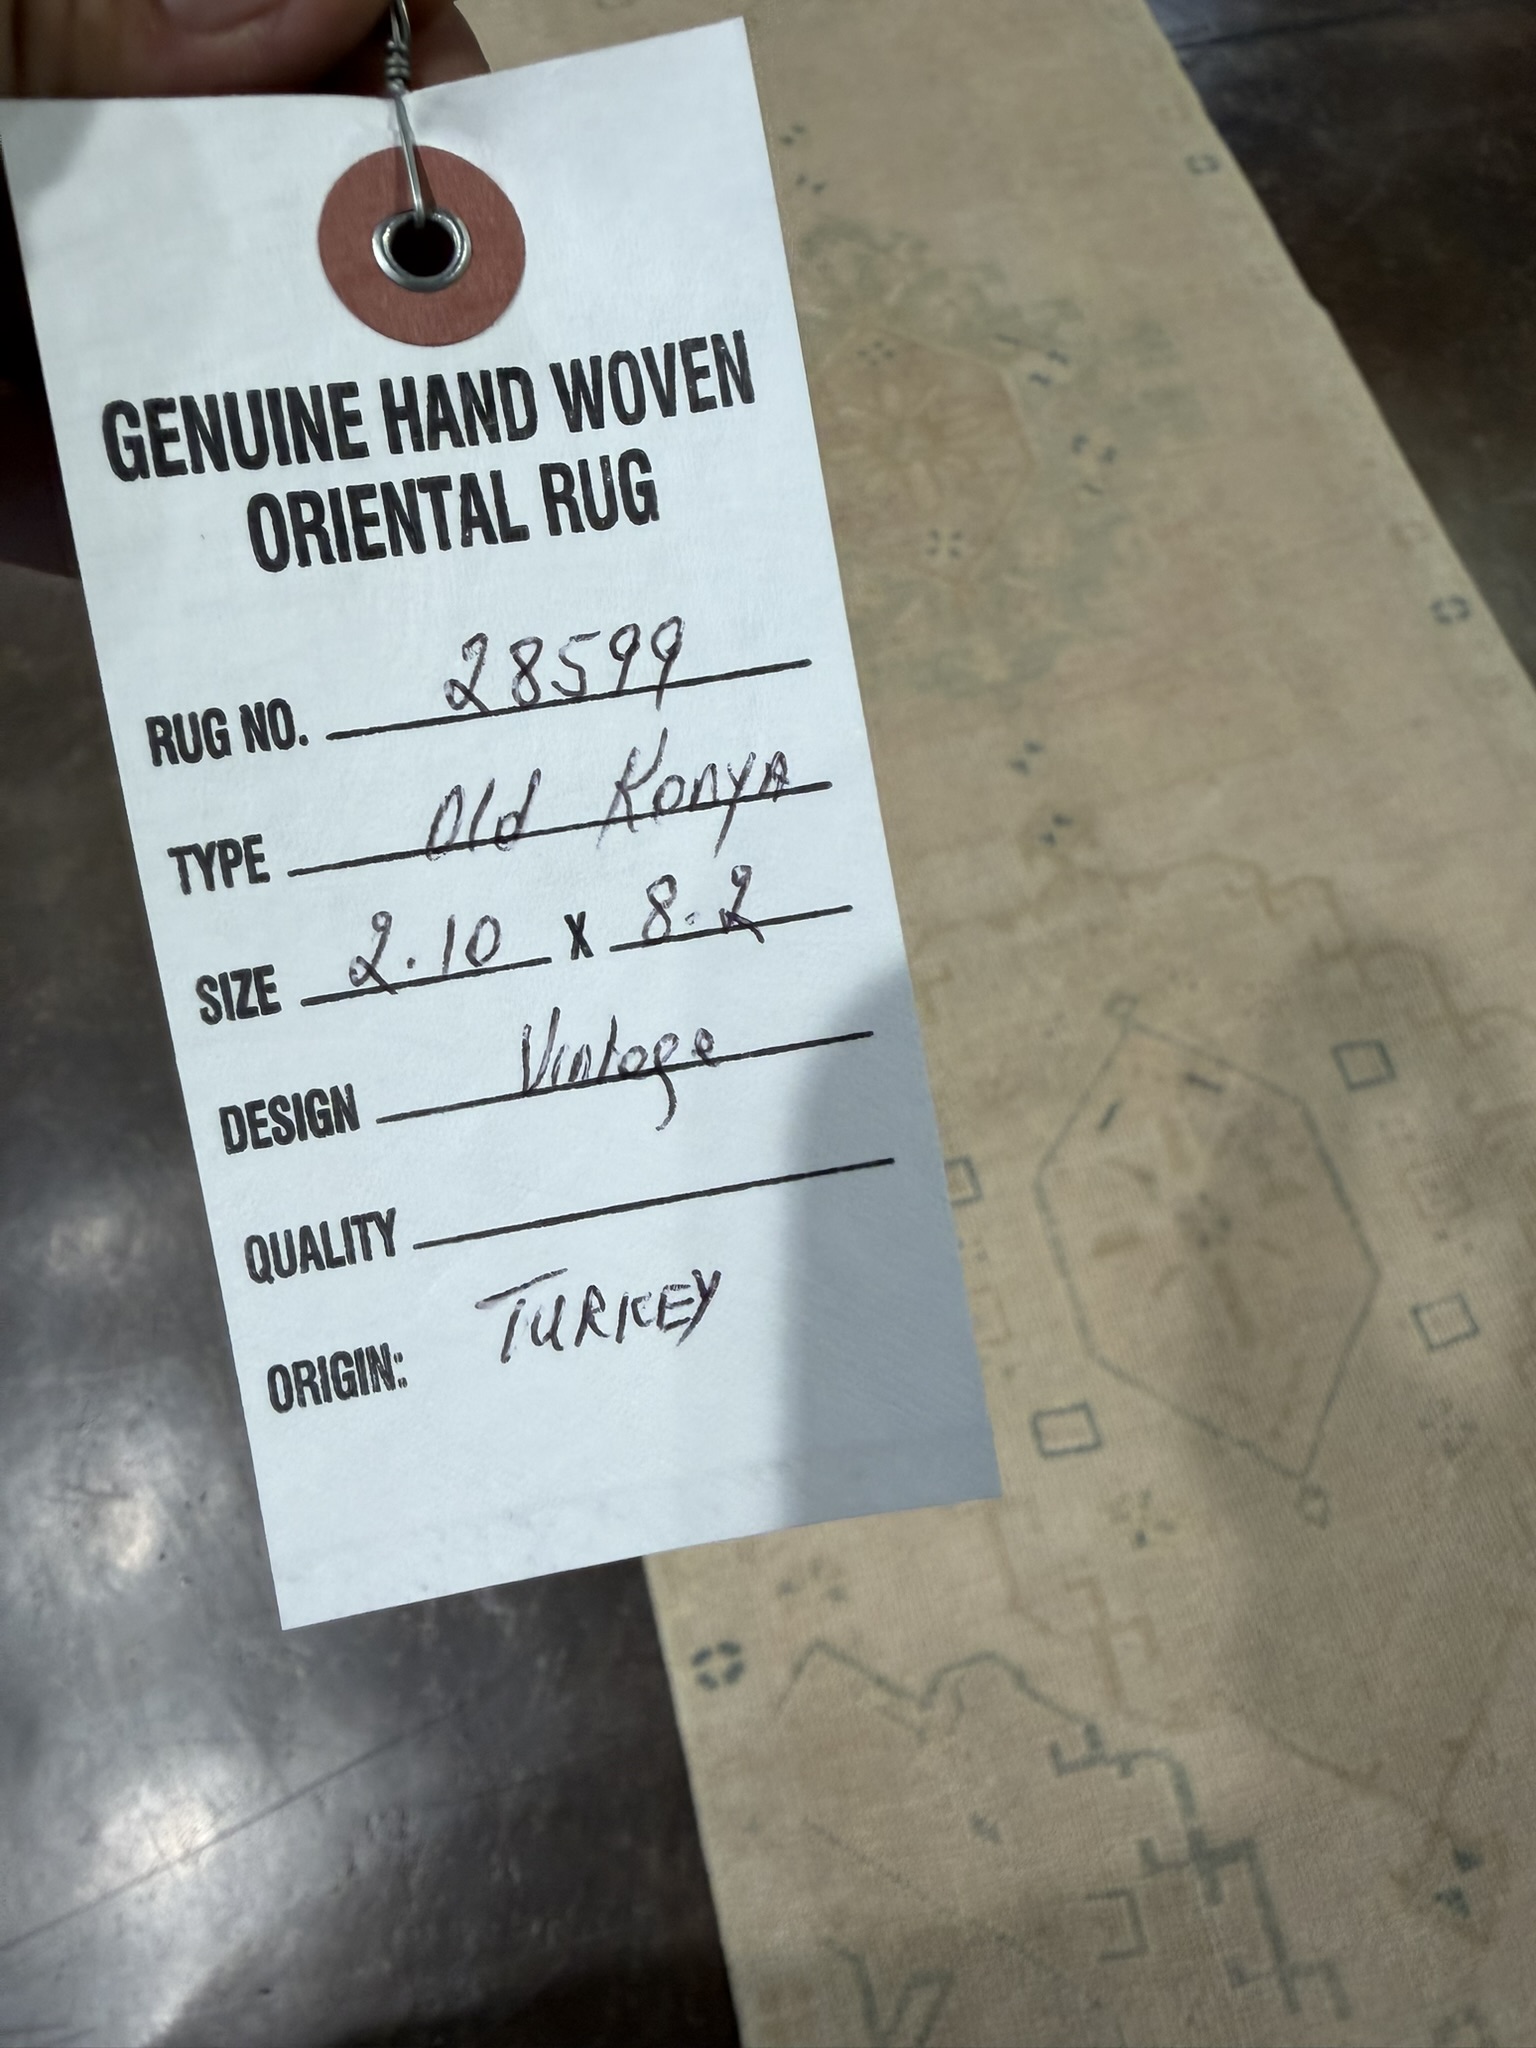 GENUINE HAND WOVEN
ORIENTAL RUG
RUG NO. 28599
TYPE Old Konya
SIZE 2.10 X 8.2
DESIGN Vintage
QUALITY
ORIGIN: TURKEY